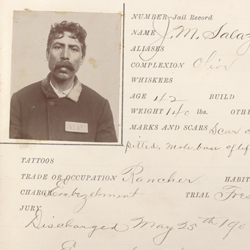 NUMBER Jail Record
NAME J. M. Salaz
ALIASES
COMPLEXION Olive
WHISKERS
AGE 42 BUILD
WEIGHT 140 lbs. OTHE
MARKS AND SCARS Scar o
Mole base of lef
TATTOOS
TRADE OR OCCUPATION Rancher HABIT
CHARGE Embezzlement TRIAL
JURY
Discharged May 25th 19